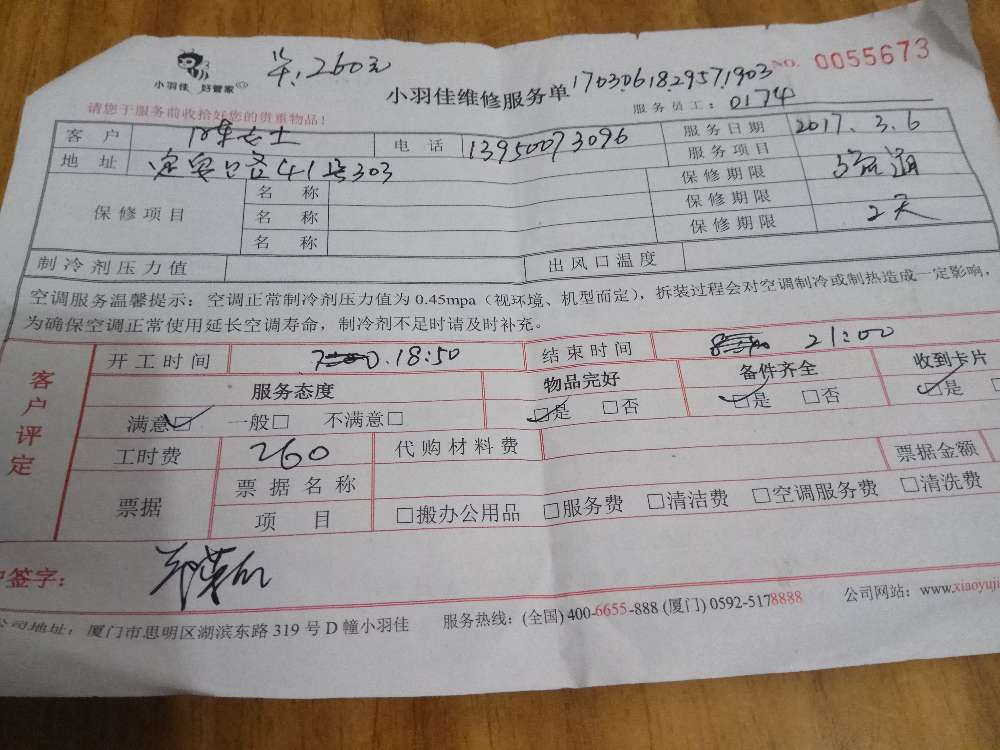 260元
小羽佳 好管家
小羽佳维修服务单 1703061829571903 NO. 0055673
请您于服务前收拾好您的贵重物品！
服务员工：0174
客户 陈女士 电话 13950073096 服务日期 2017.3.6
地址 41号303 服务项目
保修项目 名称 保修期限
名称 保修期限
名称 保修期限 2天
制冷剂压力值 出风口温度
空调服务温馨提示：空调正常制冷剂压力值为 0.45mpa（视环境、机型而定），拆装过程会对空调制冷或制热造成一定影响，
为确保空调正常使用延长空调寿命，制冷剂不足时请及时补充。
客户评定
开工时间 18:50 结束时间 21:00
服务态度 物品完好 备件齐全 收到卡片
满意☑ 一般□ 不满意□ ☑是 □否 ☑是 □否 ☑是
工时费 260 代购材料费 票据金额
票据 票据名称
项目 □搬办公用品 □服务费 □清洁费 □空调服务费 □清洗费
签字：
公司地址：厦门市思明区湖滨东路 319 号 D 幢小羽佳 服务热线：(全国) 400-6655-888 (厦门) 0592-5178888 公司网站：www.xiaoyuji